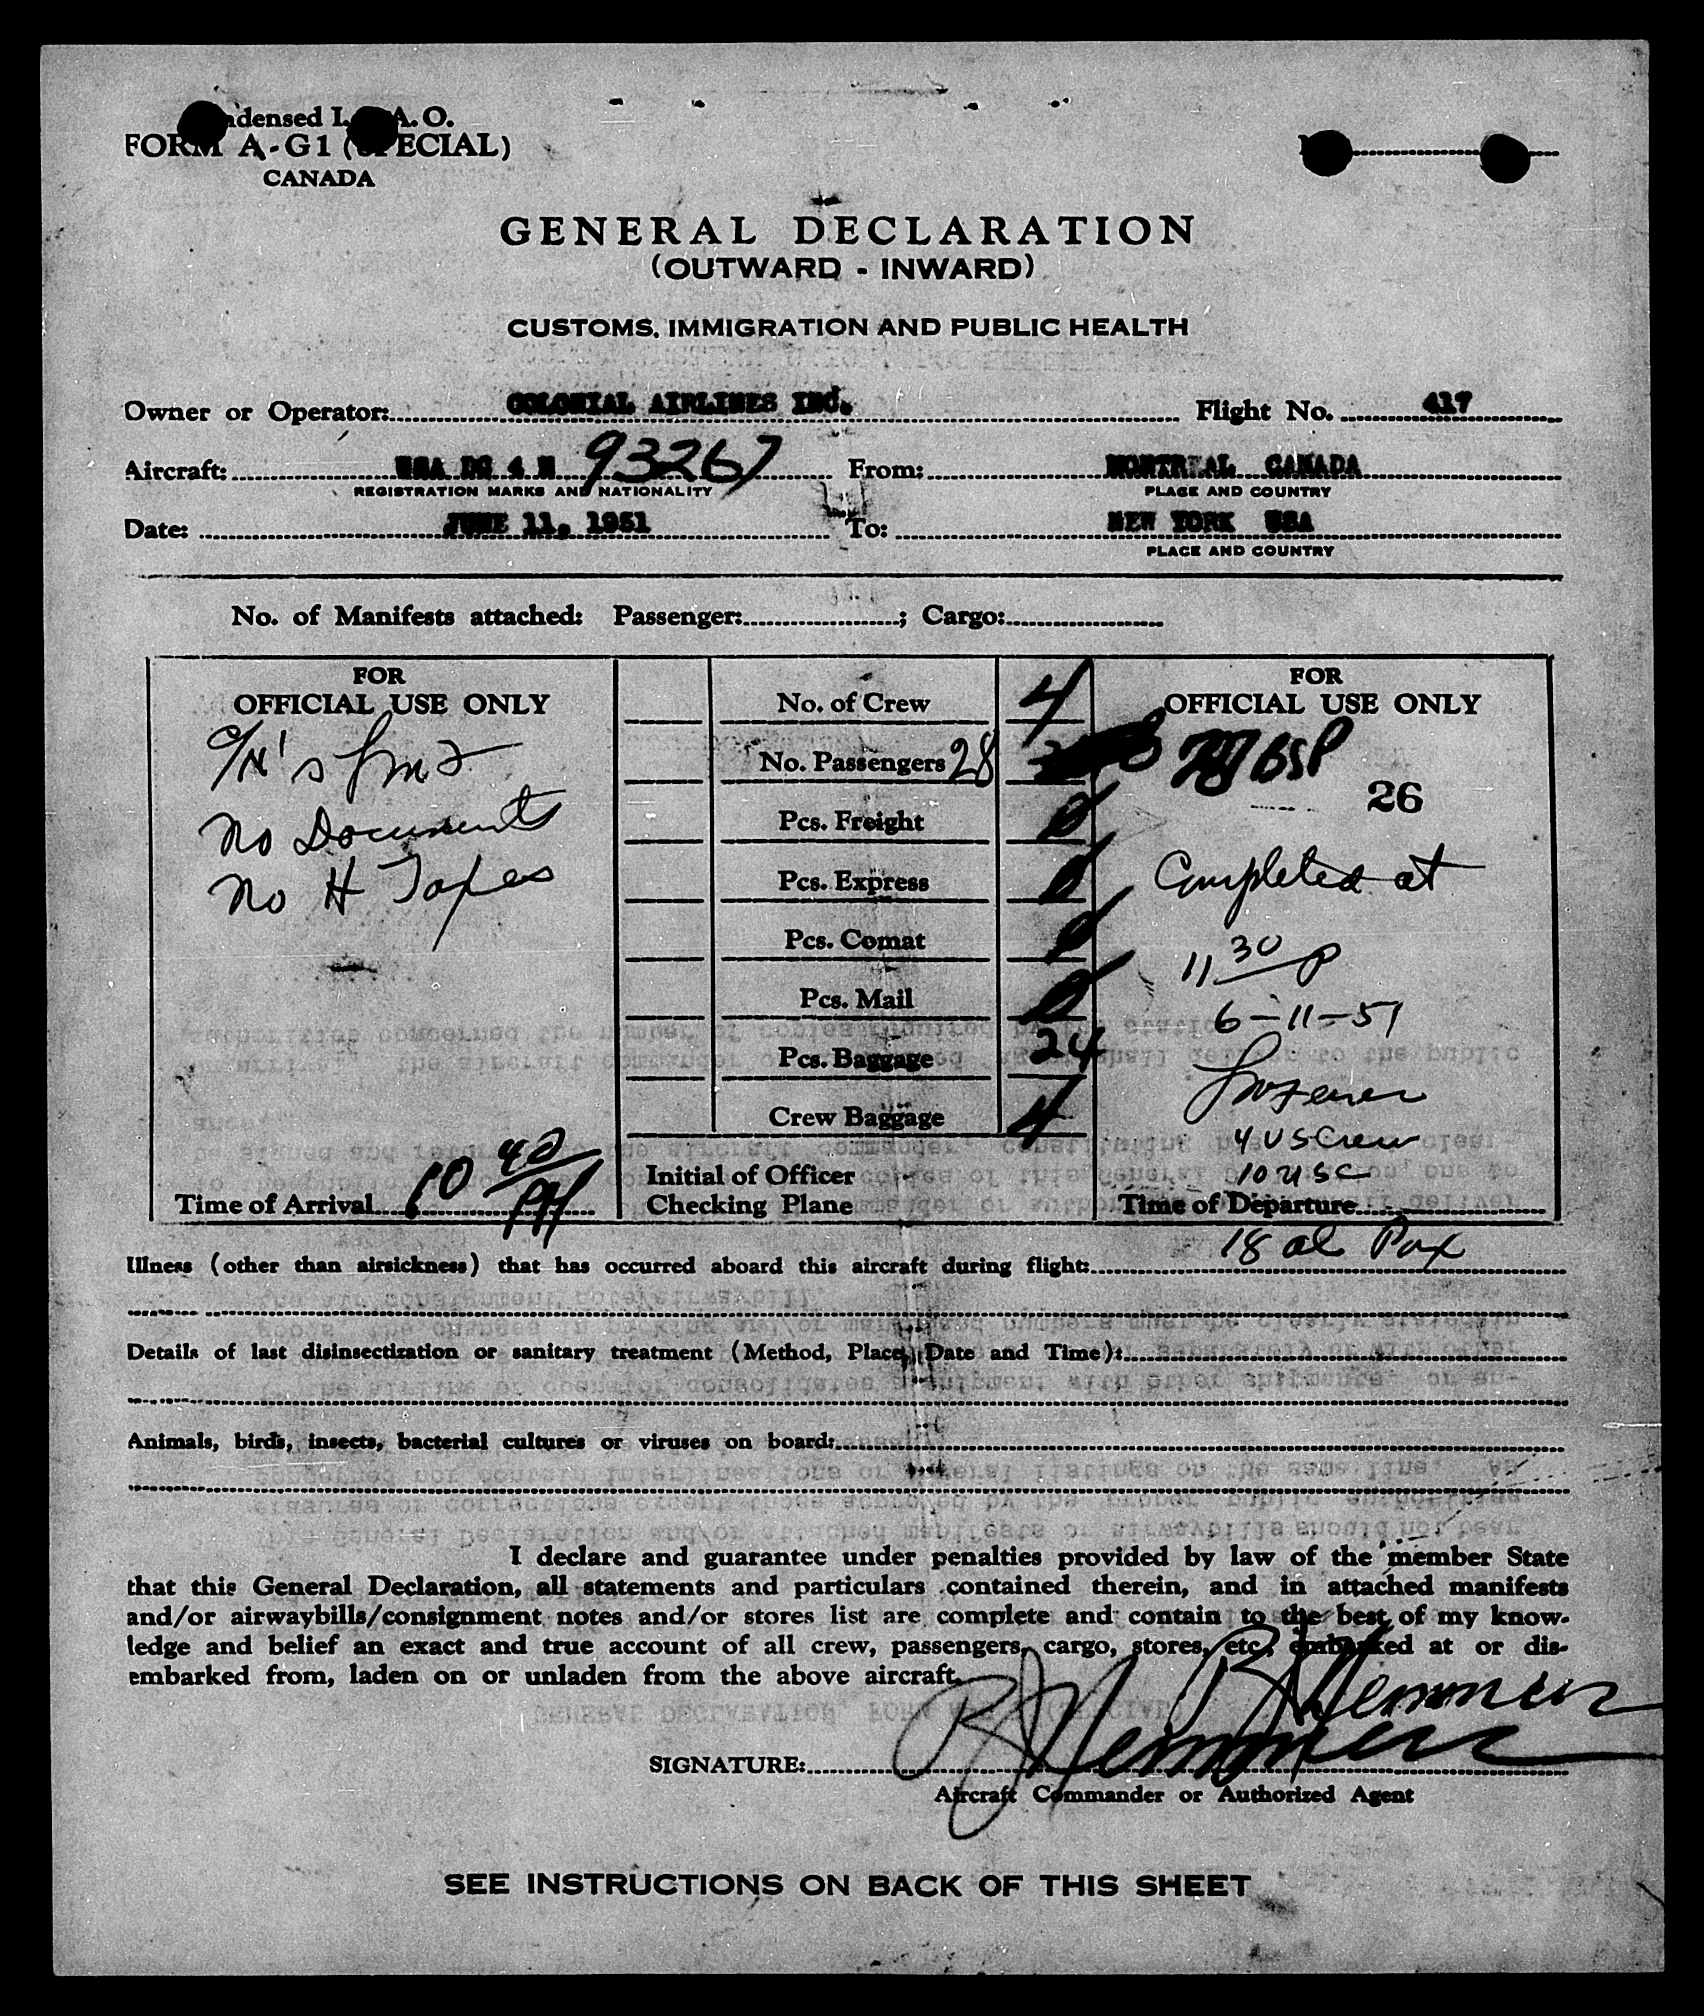 FORM A-G1 (SPECIAL)
CANADA
GENERAL DECLARATION
(OUTWARD - INWARD)
CUSTOMS, IMMIGRATION AND PUBLIC HEALTH
Owner or Operator: COLONIAL AIRLINES INC. Flight No. 417
Aircraft: USA DC 4 N 93267 From: MONTREAL CANADA
REGISTRATION MARKS AND NATIONALITY PLACE AND COUNTRY
Date: JUNE 11, 1951 To: NEW YORK USA
PLACE AND COUNTRY
No. of Manifests attached: Passenger: ; Cargo:
FOR
OFFICIAL USE ONLY
No Documents
No H
Time of Arrival 10 42 PM
No. of Crew 4
No. Passengers 28
Pcs. Freight 0
Pcs. Express 0
Pcs. Comat 0
Pcs. Mail 0
Pcs. Baggage 24
Crew Baggage 4
Initial of Officer
Checking Plane
FOR
OFFICIAL USE ONLY
26
Completed at
11 30 P
6-11-51
4 US Crew
10 USC
Time of Departure
18 al Pax
Illness (other than airsickness) that has occurred aboard this aircraft during flight:
Details of last disinsectization or sanitary treatment (Method, Place, Date and Time):
Animals, birds, insects, bacterial cultures or viruses on board:
I declare and guarantee under penalties provided by law of the member State
that this General Declaration, all statements and particulars contained therein, and in attached manifests
and/or airwaybills/consignment notes and/or stores list are complete and contain to the best of my know-
ledge and belief an exact and true account of all crew, passengers, cargo, stores, etc., embarked at or dis-
embarked from, laden on or unladen from the above aircraft.
SIGNATURE:
Aircraft Commander or Authorized Agent
SEE INSTRUCTIONS ON BACK OF THIS SHEET